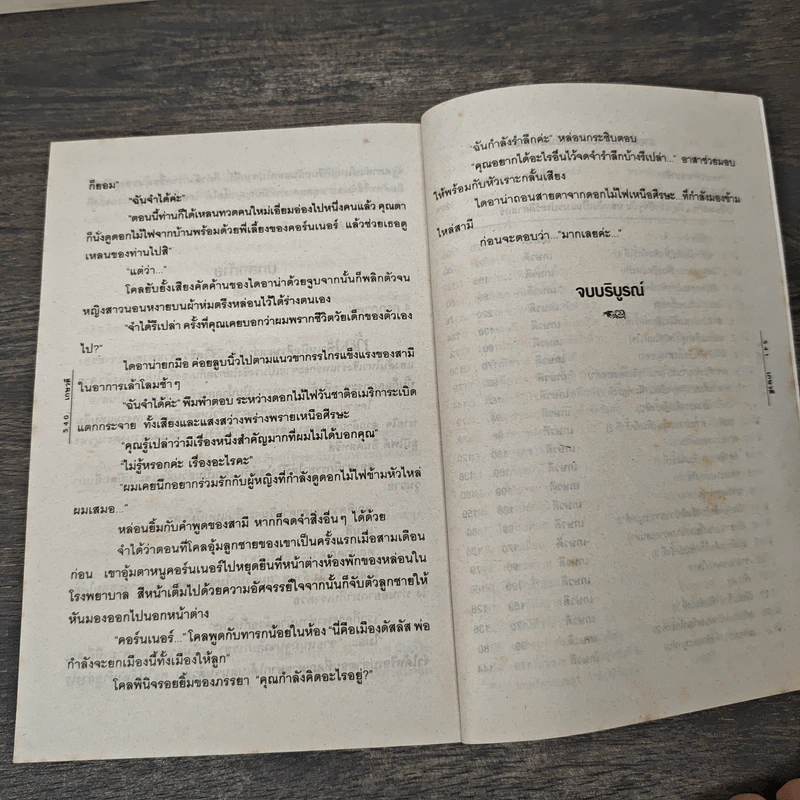 ก็ยอม"
"ฉันจำได้ค่ะ"
"ตอนนี้ท่านก็ได้เหลนทวดคนใหม่เอี่ยมอ่องไปหนึ่งคนแล้ว คุณตา
ก็นั่งดูดอกไม้ไฟจากบ้านพร้อมด้วยพี่เลี้ยงของคอร์นเนอร์ แล้วช่วยเธอดู
เหลนของท่านไปสิ"
"แต่ว่า..."
โคลยับยั้งเสียงคัดค้านของไดอาน่าด้วยจูบจากนั้นก็พลิกตัวจน
หญิงสาวนอนหงายบนผ้าห่มตรึงหล่อนไว้ใต้ร่างตนเอง
"จำได้รึเปล่า ครั้งที่คุณเคยบอกว่าผมพรากชีวิตวัยเด็กของตัวเอง
ไป?"
ไดอาน่ายกมือ ค่อยลูบนิ้วไปตามแนวขากรรไกรแข็งแรงของสามี
ในอาการเล้าโลมช้าๆ
"ฉันจำได้ค่ะ" พึมพำตอบ ระหว่างดอกไม้ไฟวันชาติอเมริการะเบิด
แตกกระจาย ทั้งเสียงและแสงสว่างพร่างพรายเหนือศีรษะ
"คุณรู้เปล่าว่ามีเรื่องหนึ่งสำคัญมากที่ผมไม่ได้บอกคุณ"
"ไม่รู้หรอกค่ะ เรื่องอะไรคะ"
"ผมเคยนึกอยากร่วมรักกับผู้หญิงที่กำลังดูดอกไม้ไฟข้ามหัวไหล่
ผมเสมอ..."
หล่อนยิ้มกับคำพูดของสามี หากก็จดจำสิ่งอื่นๆ ได้ด้วย
จำได้ว่าตอนที่โคลอุ้มลูกชายของเขาเป็นครั้งแรกเมื่อสามเดือน
ก่อน เขาอุ้มตาหนูคอร์นเนอร์ไปหยุดยืนที่หน้าต่างห้องพักของหล่อนใน
โรงพยาบาล สีหน้าเต็มไปด้วยความอัศจรรย์ใจจากนั้นก็จับตัวลูกชายให้
หันมองออกไปนอกหน้าต่าง
"คอร์นเนอร์..." โคลพูดกับทารกน้อยในห้อง "นี่คือเมืองดัสลัส พ่อ
กำลังจะยกเมืองนี้ทั้งเมืองให้ลูก"
โคลพินิจรอยยิ้มของภรรยา "คุณกำลังคิดอะไรอยู่?"
540 เกษวดี
"ฉันกำลังรำลึกค่ะ" หล่อนกระซิบตอบ
"คุณอยากได้อะไรอื่นไว้จดจำรำลึกบ้างรึเปล่า..." อาสาช่วยมอบ
ให้พร้อมกับหัวเราะกลั้นเสียง
ไดอาน่าถอนสายตาจากดอกไม้ไฟเหนือศีรษะ..ที่กำลังมองข้าม
ไหล่สามี
ก่อนจะตอบว่า..."มากเลยค่ะ..."
จบบริบูรณ์
541 เกษวดี